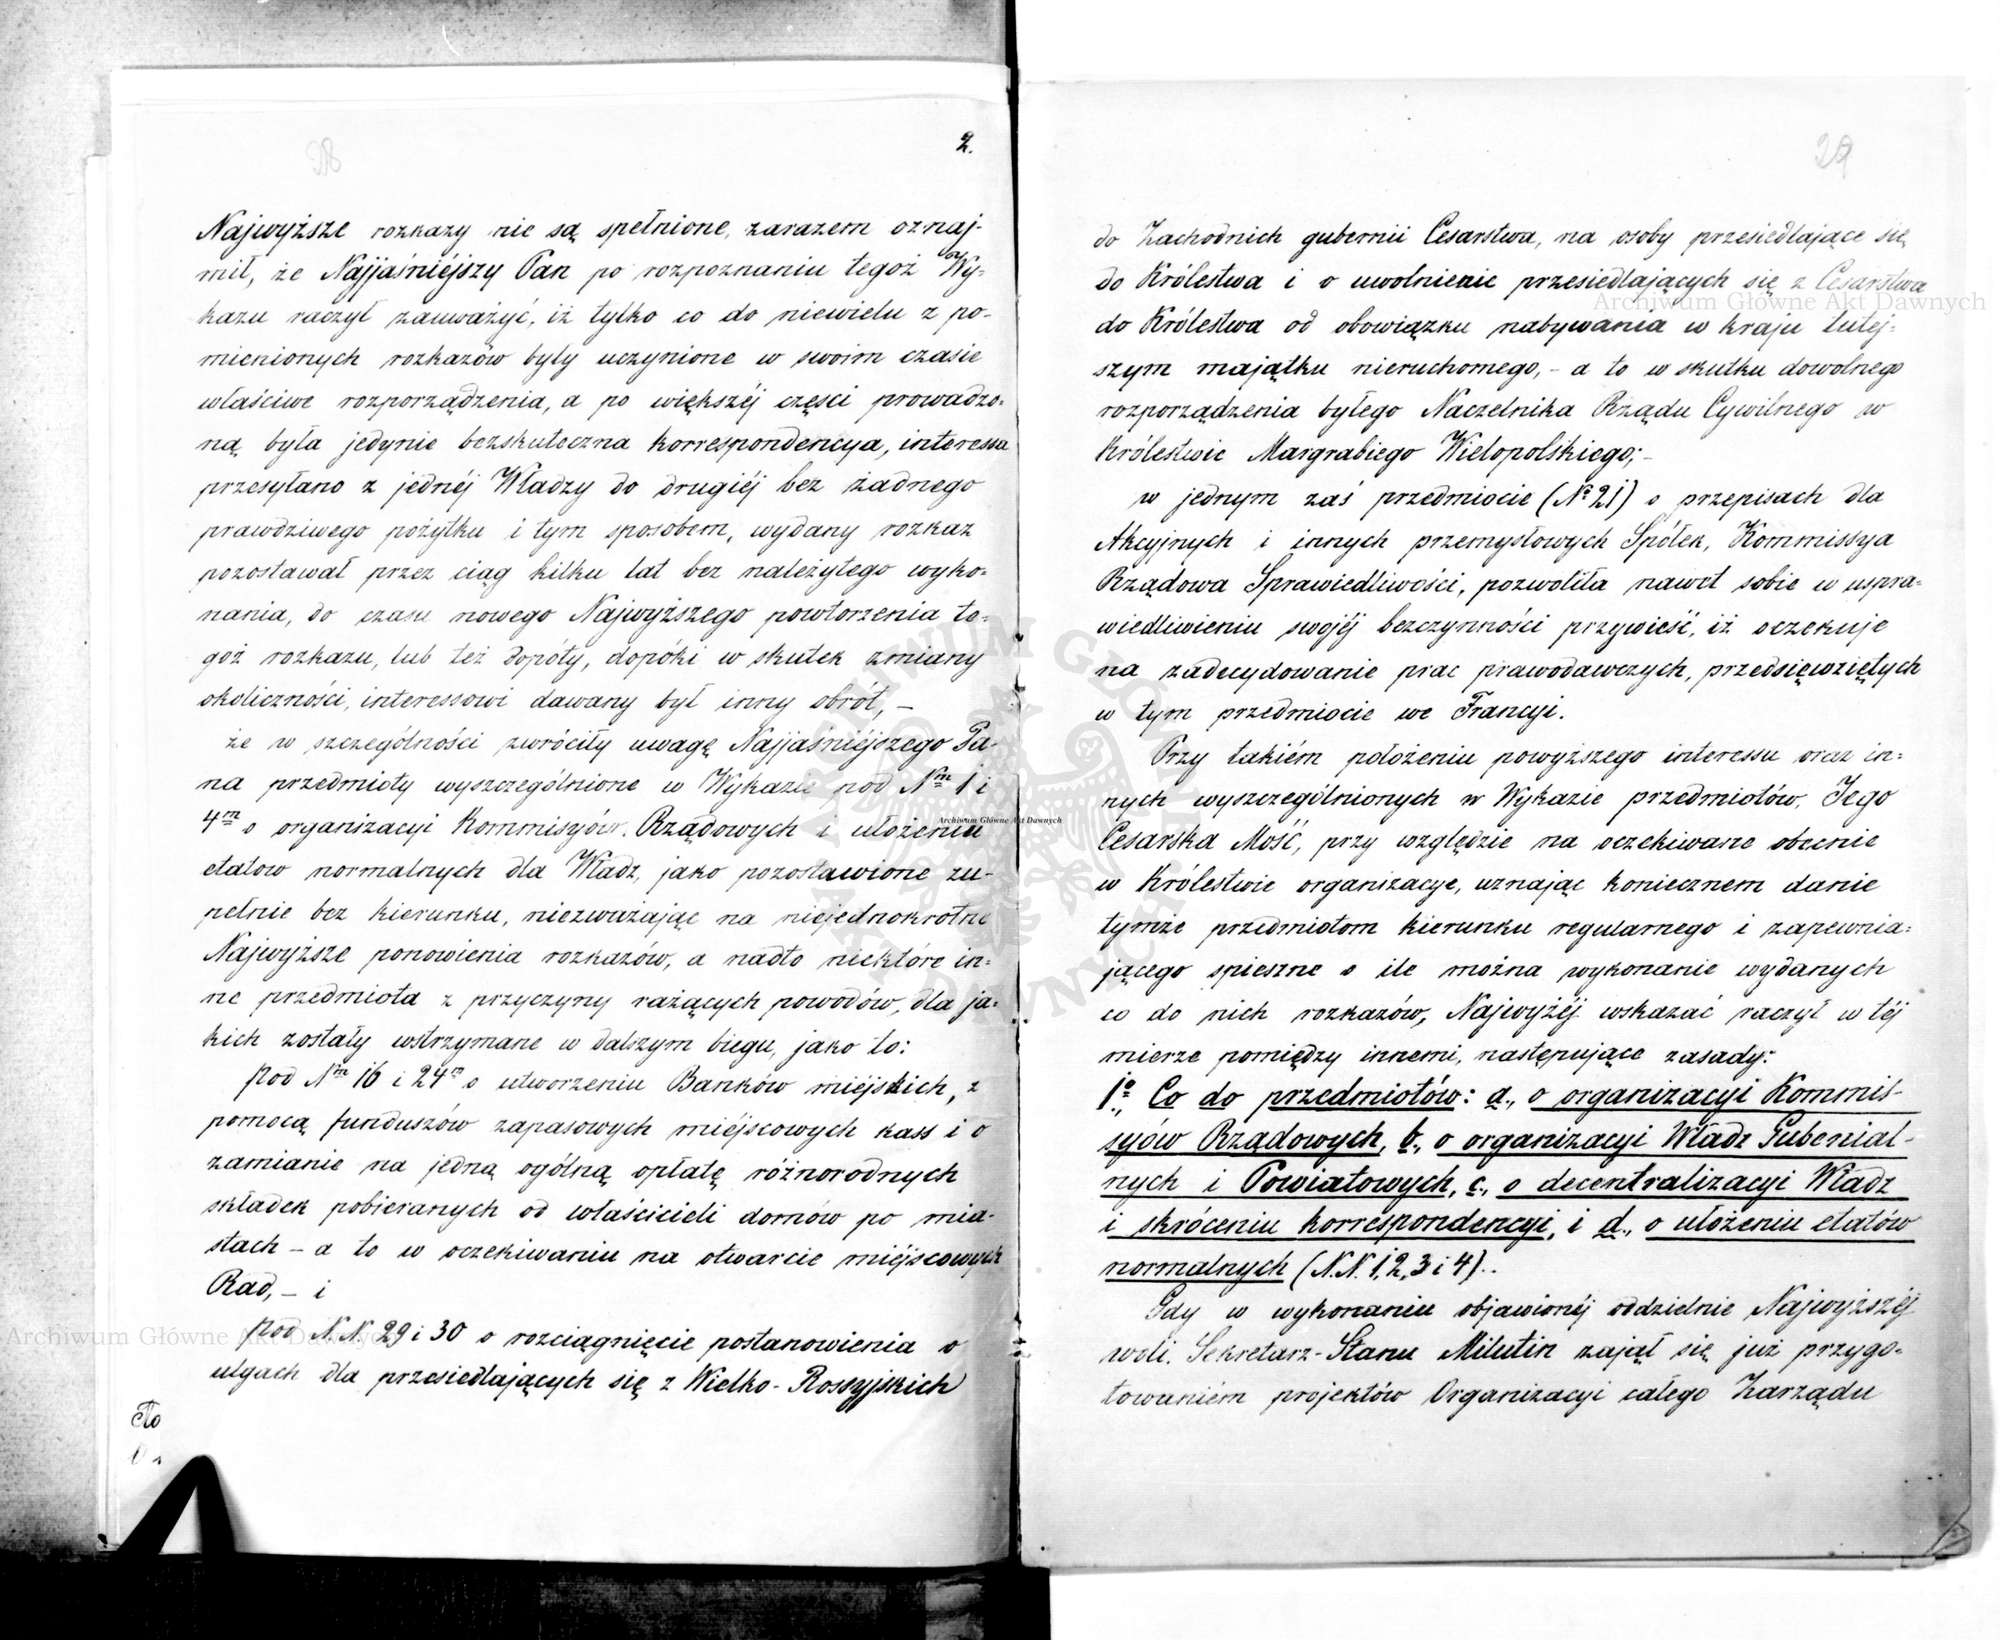 2.
Najwyższe rozkazy nie są spełnione, zarazem oznaj-
mił, że Najjaśniéjszy Pan po rozpoznaniu tegoż Wy-
kazu raczył zauważyć, iż tylko co do niewielu z po-
mienionych rozkazów były uczynione w swoim czasie
właściwe rozporządzenia, a po większéj części prowadzo-
ną była jedynie bezskuteczna korrespondencya, interessa
przesyłano z jednéj Władzy do drugiéj bez żadnego
prawdziwego pożytku i tym sposobem, wydany rozkaz
pozostawał przez ciąg kilku lat bez należytego wyko-
nania, do czasu nowego Najwyższego powtórzenia to-
goż rozkazu, lub też dopóty, dopóki w skutek zmiany
okoliczności, interessowi dawany był inny obrót, –
że w szczególności zwróciły uwagę Najjaśniéjszego Pa-
na przedmioty wyszczególnione w Wykazie pod Nm 1 i
4m o organizacyi Kommisyów Rządowych i ułożeniu
etatów normalnych dla Władz, jako pozostawione zu-
pełnie bez kierunku, niezważając na niejednokrotne
Najwyższe ponowienia rozkazów, a nadto niektóre in-
ne przedmiota z przyczyny rażących powodów, dla ja-
kich zostały wstrzymane w dalszym biegu, jako to:
pod Nm 16 i 24m o utworzeniu Banków miéjskich, z
pomocą funduszów zapasowych miéjscowych kass i o
zamianie na jedną ogólną opłatę różnorodnych
składek pobieranych od właścicieli domów po mia-
stach – a to w oczekiwaniu na otwarcie miéjscowych
Rad, – i
pod N.N. 29 i 30 o rozciągnięcie postanowienia o
ulgach dla przesiedlających się z Wielko-Rossyjskich
29
do Zachodnich gubernii Cesarstwa, na osoby przesiedlające się
do Królestwa i o uwolnienie przesiedlających się z Cesarstwa
do Królestwa od obowiązku nabywania w kraju tutéj-
szym majątku nieruchomego, – a to w skutku dowolnego
rozporządzenia byłego Naczelnika Rządu Cywilnego w
Królestwie Margrabiego Wielopolskiego; –
w jednym zaś przedmiocie (No 21) o przepisach dla
Akcyjnych i innych przemysłowych Spółek, Kommissya
Rządowa Sprawiedliwości, pozwoliła nawet sobie w uspra-
wiedliwieniu swojéj bezczynności przywieść, iż oczekuje
na zadecydowanie prac prawodawczych, przedsięwziętych
w tym przedmiocie we Francyi.
Przy takiém położeniu powyższego interessu oraz in-
nych wyszczególnionych w Wykazie przedmiotów, Jego
Cesarska Mość, przy względzie na oczekiwane obecnie
w Królestwie organizacye, uznając koniecznem danie
tymże przedmiotom kierunku regularnego i zapewnia-
jącego spieszne o ile można wykonanie wydanych
co do nich rozkazów, Najwyżéj wskazać raczył w téj
mierze pomiędzy innemi, następujące zasady:
1o, Co do przedmiotów: a., o organizacyi Kommis-
syów Rządowych, b., o organizacyi Władz Gubenial-
nych i Powiatowych, c., o decentralizacyi Władz
i skróceniu korrespondencyi, i d., o ułożeniu etatów
normalnych (N.N. 1, 2, 3 i 4).
Gdy w wykonaniu objawionéj oddzielnie Najwyższéj
woli, Sekretarz-Stanu Milutin zajął się już przygo-
towaniem projektów Organizacyi całego Zarządu
Archiwum Główne Akt Dawnych
Archiwum Główne Akt Dawnych
Archiwum Główne Akt Dawnych